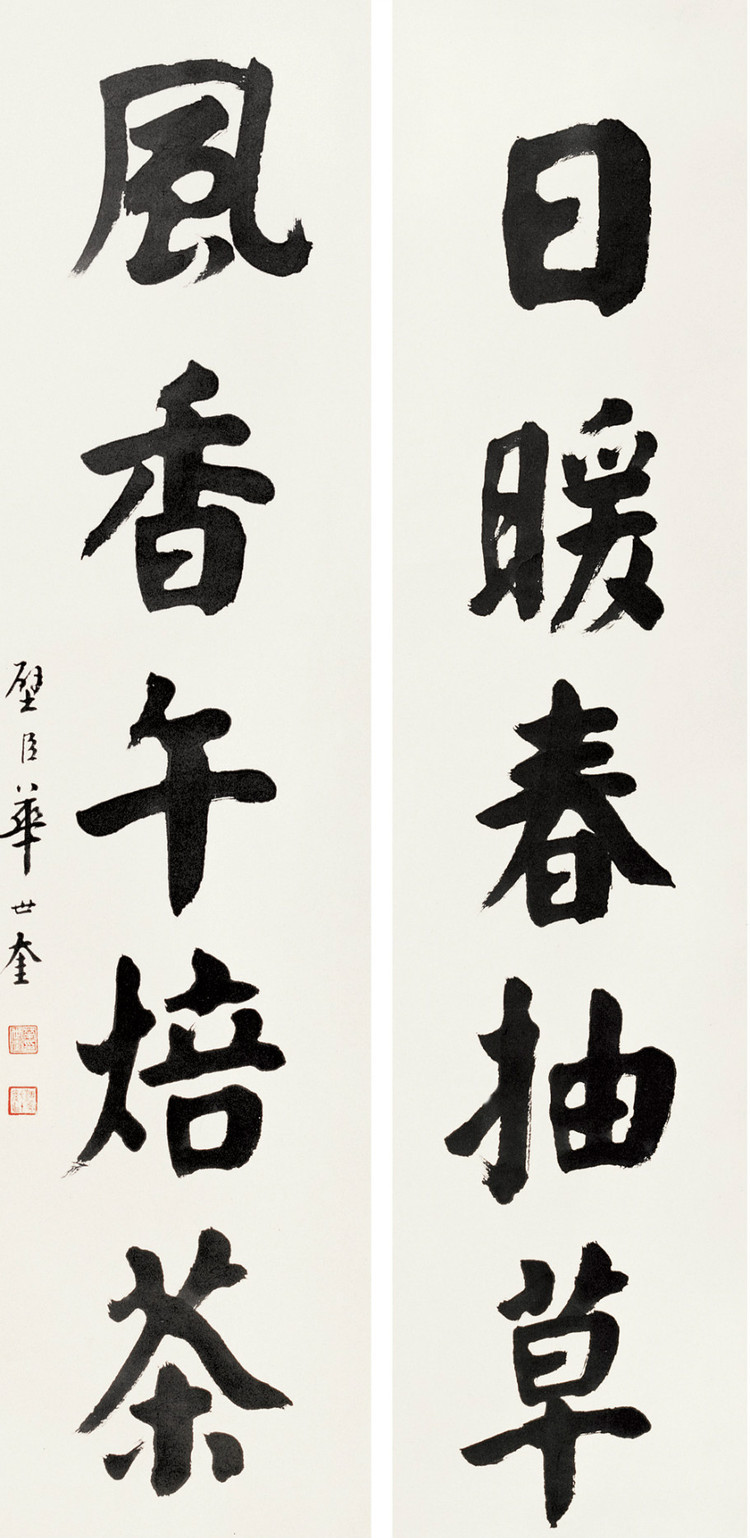 日暖春抽草
風香午焙茶
璧臣華世奎